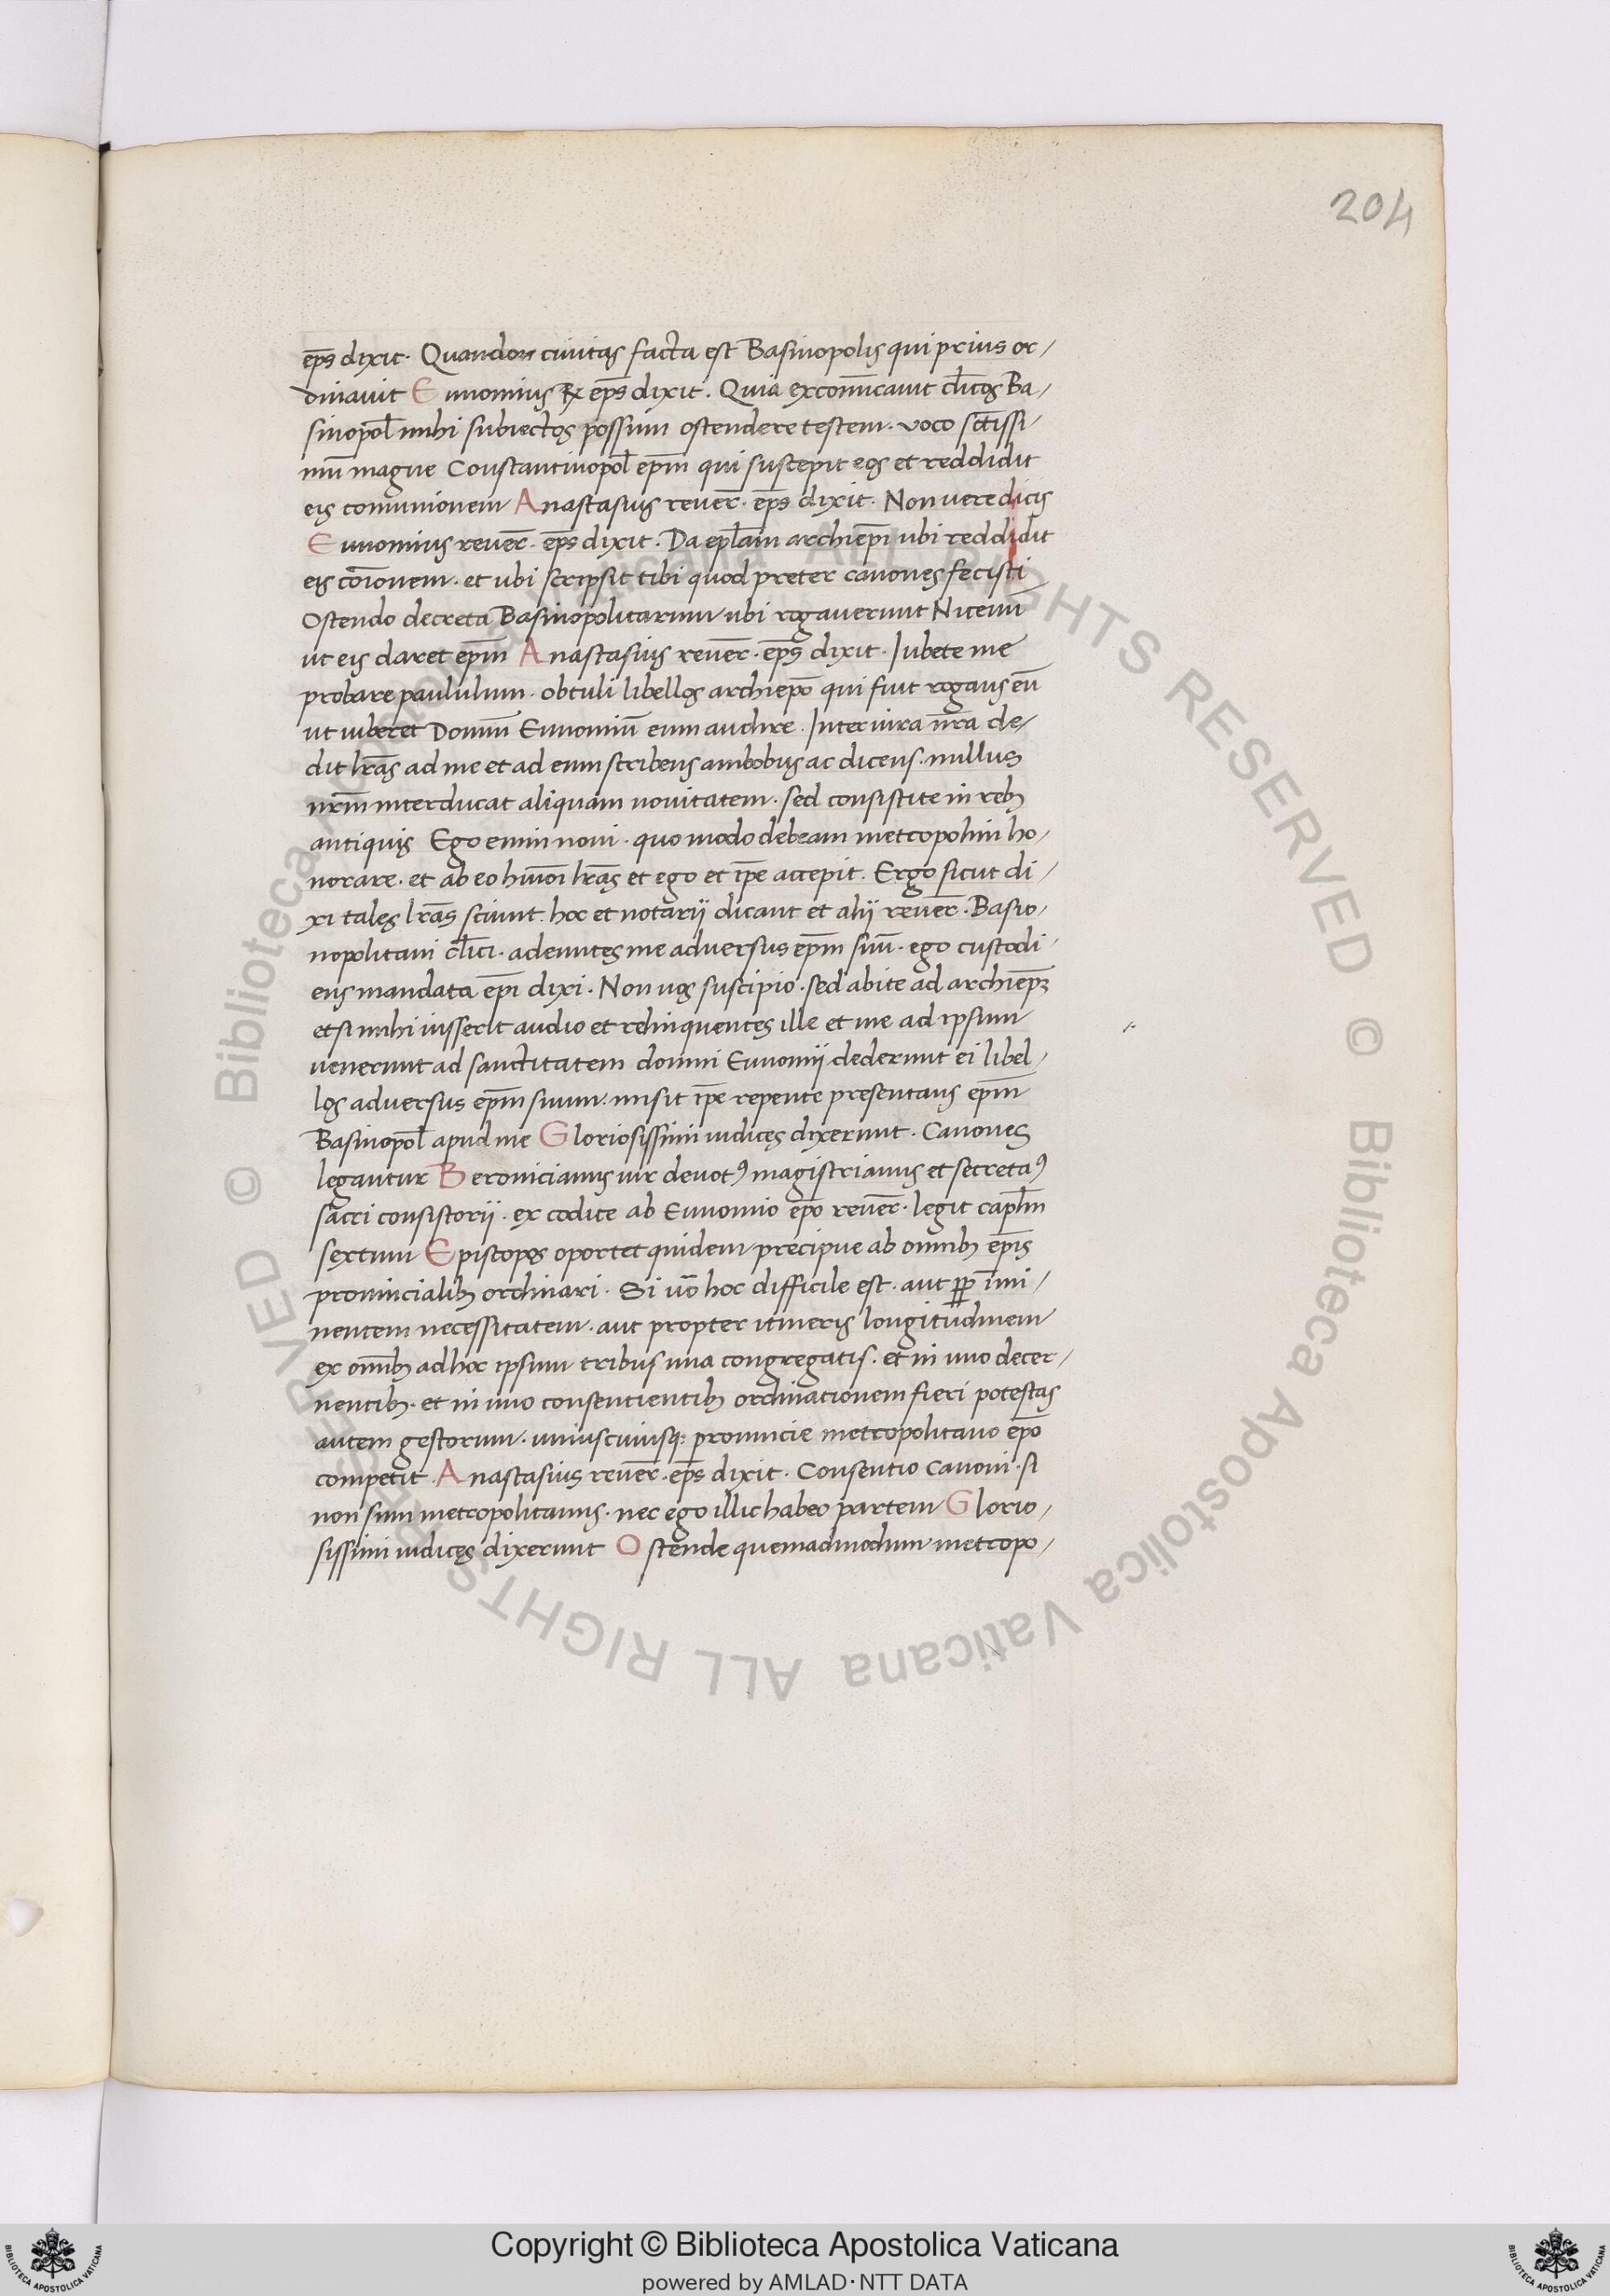 204
ep̄s dixit. Quando civitas facta est Basinopolis qui prius or-
dinavit Eunomius R ep̄s dixit. Quia excom̄unicavit cl̄icos Ba-
sinopol̄ mihi subiectos possum ostendere testem. voco sc̄tissi-
mū magne Constantinopol̄ ep̄m qui suscepit eos et reddidit
eis comunionem Anastasius rever̄. ep̄s dixit. Non vere dicis
Eunomius rever̄. ep̄s dixit. Da epl̄am archiep̄i ubi reddidit
eis cōionem. et ubi scripsit tibi quod preter canones fecisti
Ostendo decreta Basinopolitarum ubi rogaverunt Nicenū
ut eis daret ep̄m Anastasius rever̄. ep̄s dixit. Iubete me
probare paululum. obtuli libellos archiep̄o qui fuit rogans eū
ut iuberet Domn̄m Eunomiū eum audire. Inter iura nr̄a de-
dit lr̄as ad me et ad eum scribens ambobus ac dicens. nullus
nr̄m interducat aliquam novitatem. sed consistite in reb;
antiquis Ego enim novi. quo modo debeam metropolim ho-
norare. et ab eo hm̄oi lr̄as et ego et ip̄e accepit. Ergo sicut di-
xi tales lr̄as sciunt. hoc et notarij dicant et alij rever̄. Basio-
nopolitani cl̄ici. adeuntes me adversus ep̄m suū. ego custodi-
ens mandata ep̄i dixi. Non vos suscipio. sed abite ad archiep̄ꝫ
et si mihi iusserit audio et relinquentes ille et me ad ipsum
venerunt ad sanctitatem domni Eunomij dederunt ei libel-
los adversus ep̄m suum. misit ip̄e repente presentans ep̄m
Basinopol̄ apud me Gloriosissimi iudices dixerunt. Canones
legantur Beronicianus vir devotꝰ magistrianus et secretaꝰ
sacri consistorij. ex codice ab Eunomio ep̄o rever̄. legit capl̄m
sextum Episcopos oportet quidem precipue ab omnib; ep̄is
provincialib; ordinari. Si vō hoc difficile est. aut ꝓp̄ īmi-
nentem necessitatem. aut propter itineris longitudinem
ex omīb; ad hoc ipsum tribus una congregatis. et in uno decer-
nentib;. et in uno consentientib; ordinationem fieri potestas
autem gestorum. uniuscuiusq; provincie metropolitano ep̄o
competit. Anastasius rever̄. ep̄s dixit. Consentio Canoni. si
non sum metropolitanus. nec ego illic habeo partem Glorio-
sissimi iudices dixerunt Ostende quemadmodum metropo-
© Biblioteca Apostolica Vaticana ALL RIGHTS RESERVED © Biblioteca Apostolica Vaticana ALL RIGHTS RESERVED
Copyright © Biblioteca Apostolica Vaticana
powered by AMLAD·NTT DATA
BIBLIOTECA APOSTOLICA VATICANA
BIBLIOTECA APOSTOLICA VATICANA